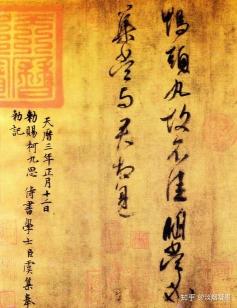 鴨頭丸故不佳明當必
集當与君相見
天曆三年正月十二日
勅賜柯九思侍書學士臣虞集奉
勅記
知乎